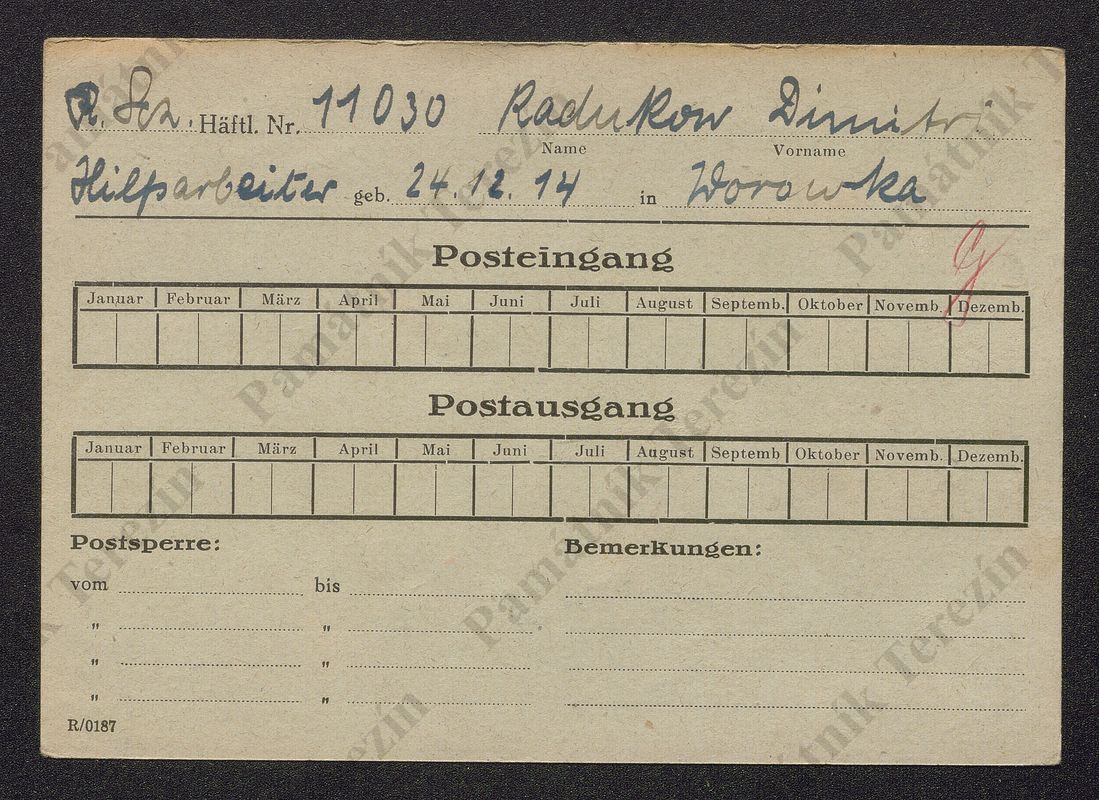 R. Sch. Häftl. Nr. 11030 Radukow Dimitri
Name Vorname
Hilfsarbeiter geb. 24.12.14 in Worowka
Posteingang
Januar Februar März April Mai Juni Juli August Septemb. Oktober Novemb. Dezemb.
Postausgang
Januar Februar März April Mai Juni Juli August Septemb Oktober Novemb. Dezemb.
Postsperre: Bemerkungen:
vom bis
" "
" "
" "
R/0187
Památník Terezín